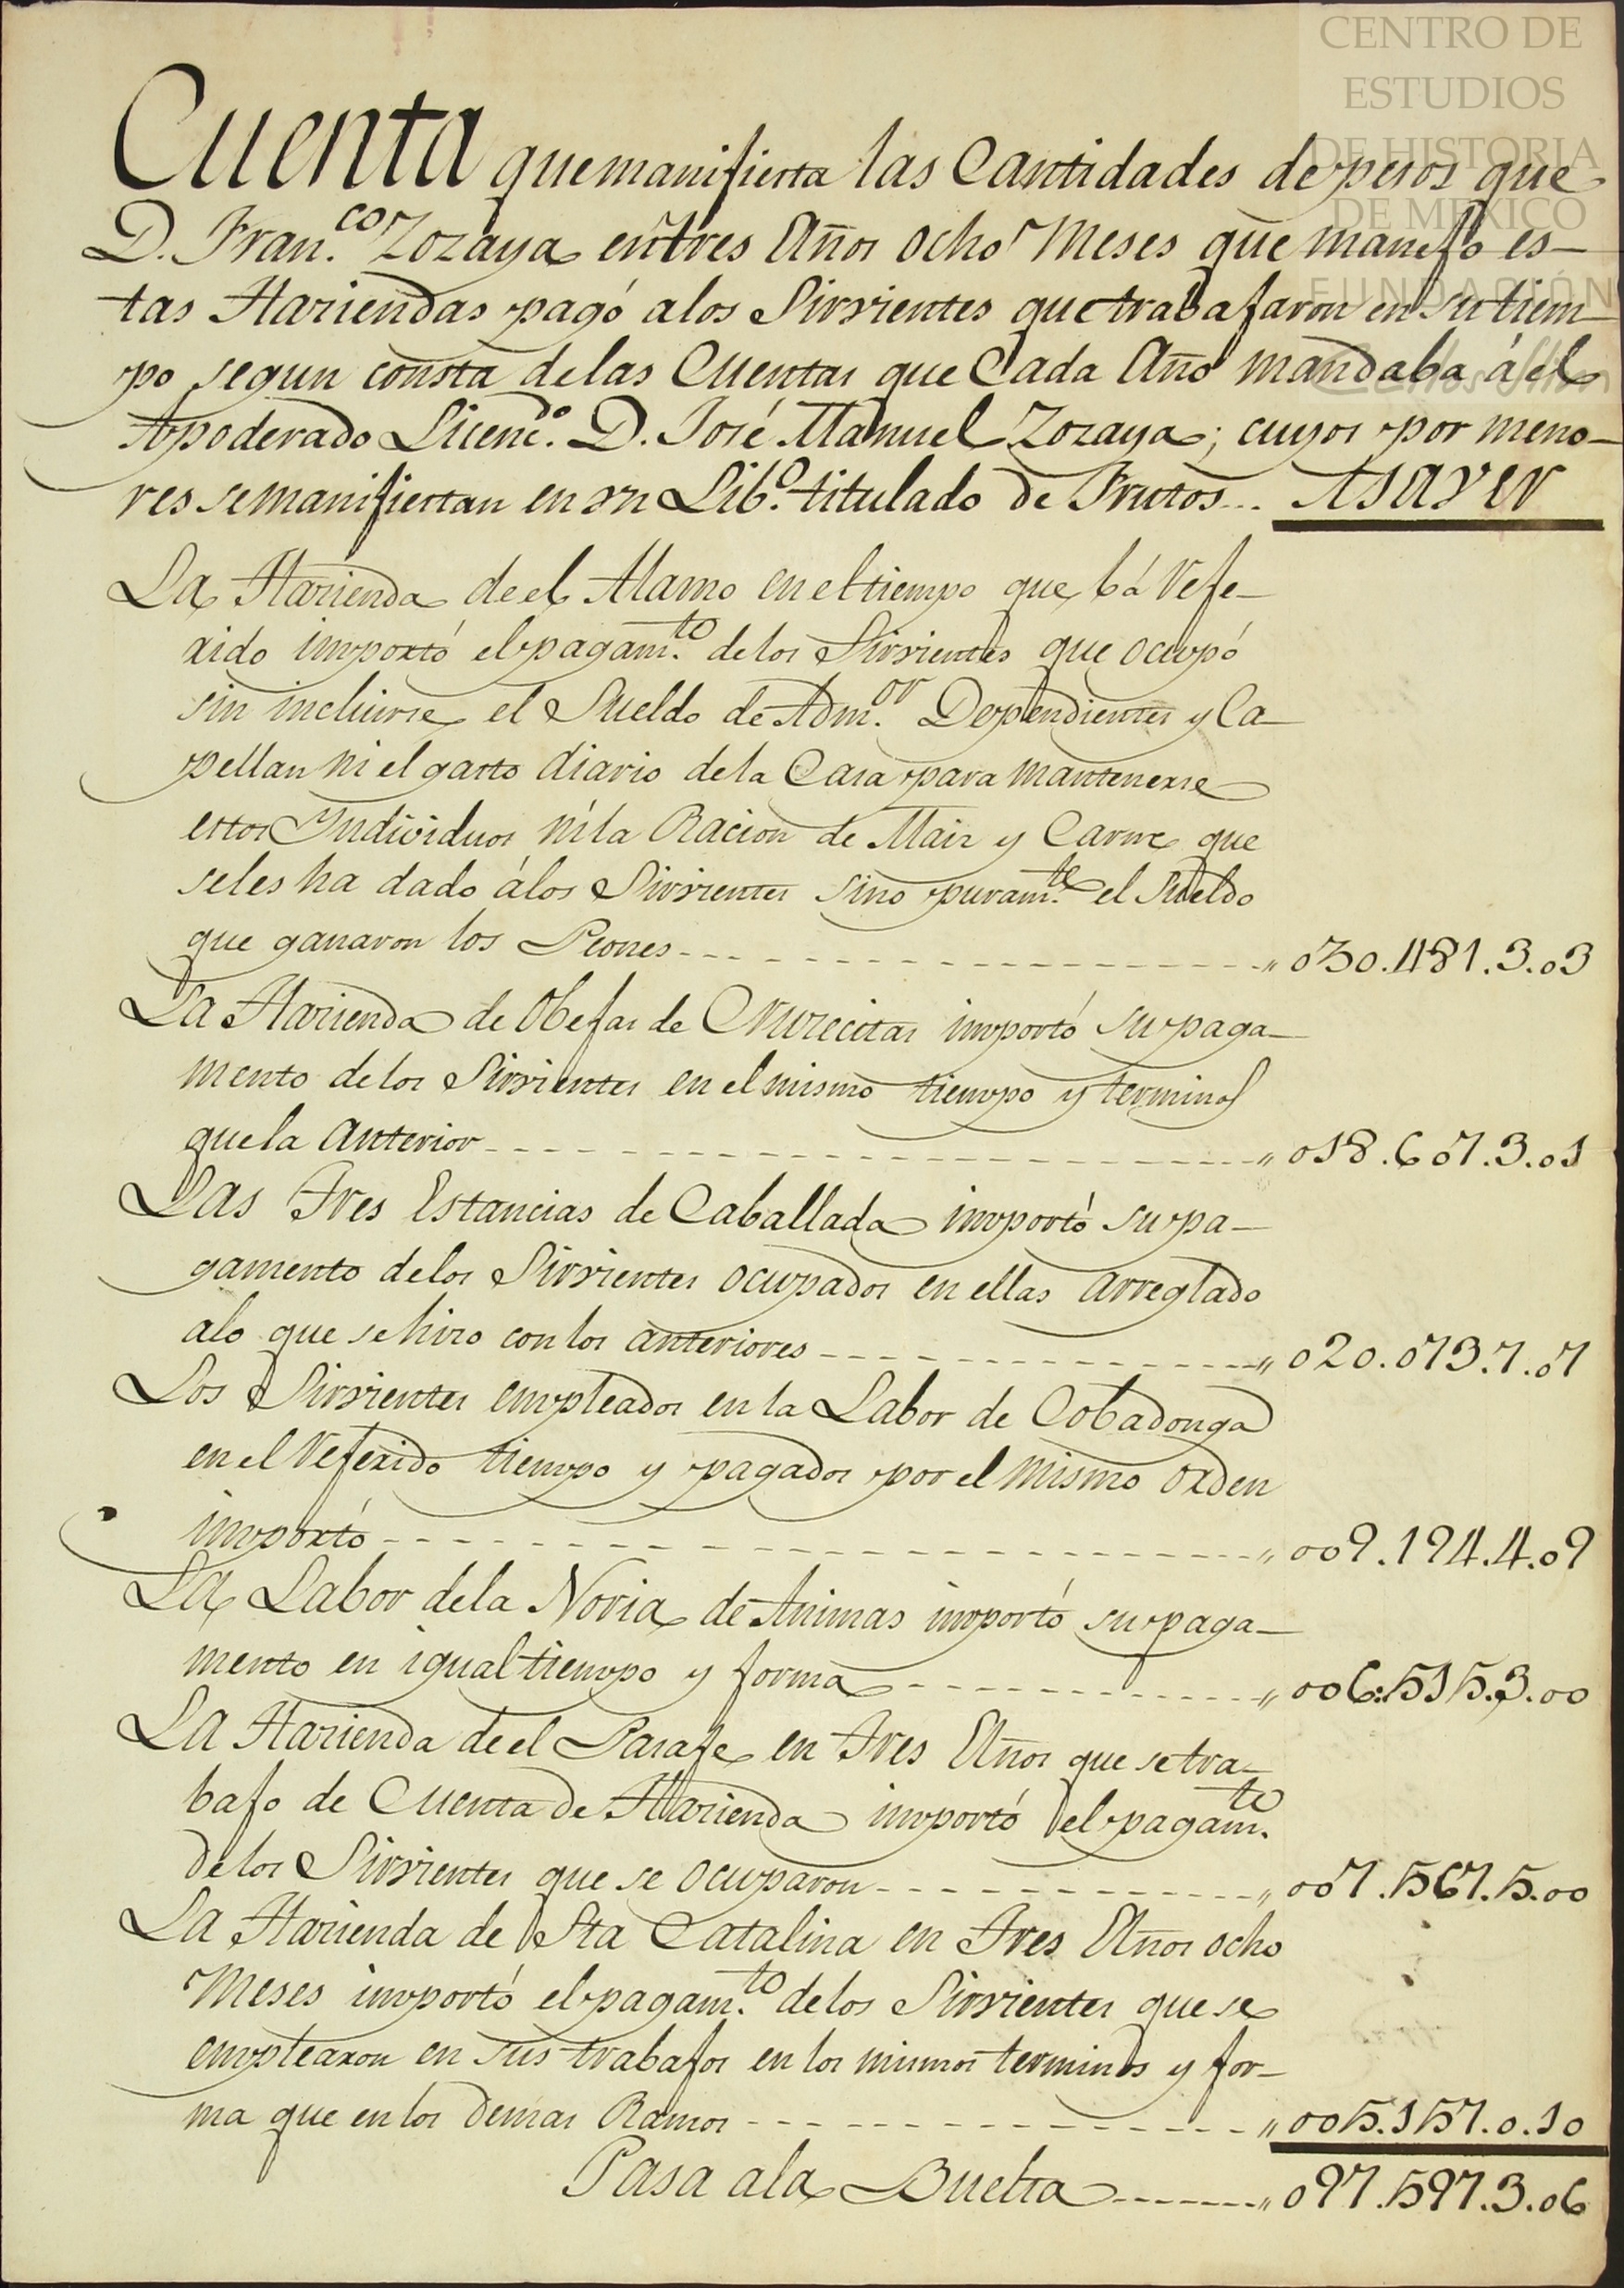 CENTRO DE
ESTUDIOS
DE HISTORIA
DE MEXICO
FUNDACIÓN
Carlos Slim
Cuenta que manifiesta las Cantidades de pesos que
D. Fran.co Zozaya en tres Años ocho Meses que manejo es-
tas Haziendas pagó a los Sirvientes que trabajaron en su tiem-
po segun consta de las Cuentas que Cada Año mandaba á el
Apoderado Licenc.do D. José Manuel Zozaya; cuyos por meno-
res se manifiestan en vn Lib.o titulado de Frutos... Asaver
La Hazienda de el Alamo en el tiempo que bá Refe-
rido importó el pagam.to de los Sirvientes que ocupó
sin incluirse el Sueldo de Adm.or Dependientes y Ca-
pellan ni el gasto diario de la Casa para mantenerse
estos Individuos ni la Racion de Maiz y Carne que
se les ha dado á los Sirvientes sino puram.te el Sueldo
que ganaron los Peones - - - - - - - - - - - - - - - - „ 030.481.3.03
La Hazienda de Obejas de Cruzecitas importó su paga-
mento de los Sirvientes en el mismo tiempo y terminos
que la Anterior - - - - - - - - - - - - - - - - - - - „ 018.607.3.01
Las Tres Estancias de Caballada importó su pa-
gamento de los Sirvientes ocupados en ellas arreglado
a lo que se hizo con los anteriores - - - - - - - - - - „ 020.073.7.07
Los Sirvientes empleados en la Labor de Cobadonga
en el Referido tiempo y pagados por el mismo orden
importó - - - - - - - - - - - - - - - - - - - - - - - „ 009.194.4.09
La Labor de la Noria de Animas importó su paga-
mento en igual tiempo y forma - - - - - - - - - - - „ 006.515.3.00
La Hazienda de el Parage en Tres Años que se tra-
bajo de Cuenta de Hazienda importó el pagam.to
de los Sirvientes que se ocuparon - - - - - - - - - - „ 007.567.5.00
La Hazienda de Sta Catalina en Tres Años ocho
Meses importó el pagam.to de los Sirvientes que se
emplearon en sus trabajos en los mismos terminos y for-
ma que en los demas Ramos - - - - - - - - - - - - - „ 005.157.0.10
Pasa a la Buelta - - - - - - - „ 097.597.3.06